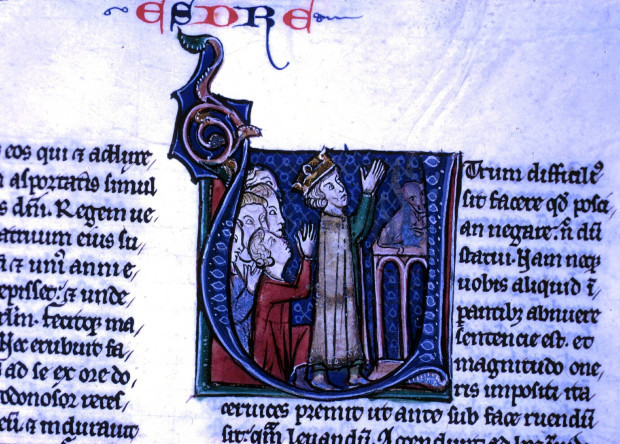 ESDRE
eos qui ⁊ adhere
a asportatis simul
s dn̄i. Regem ue
atruum eius su
a ⁊ uni anni e
episset: ⁊ unde
lin. fecitqꝫ ma
Nec erubuit fa
ad se ex ore do
odonosor reces
⁊ indurauit
Utrum difficiliꝰ
sit facere qđ posci
an negare. n̄ dū
statui. Nam neqꝫ
uobis aliquid ī
pantibꝫ abnuere
sentencie est. et
magnitudo one
ris impositi ita
ceruices premit ut ante sub fasce ruendū
sit. qm̄ leuandū. Accendunt ad